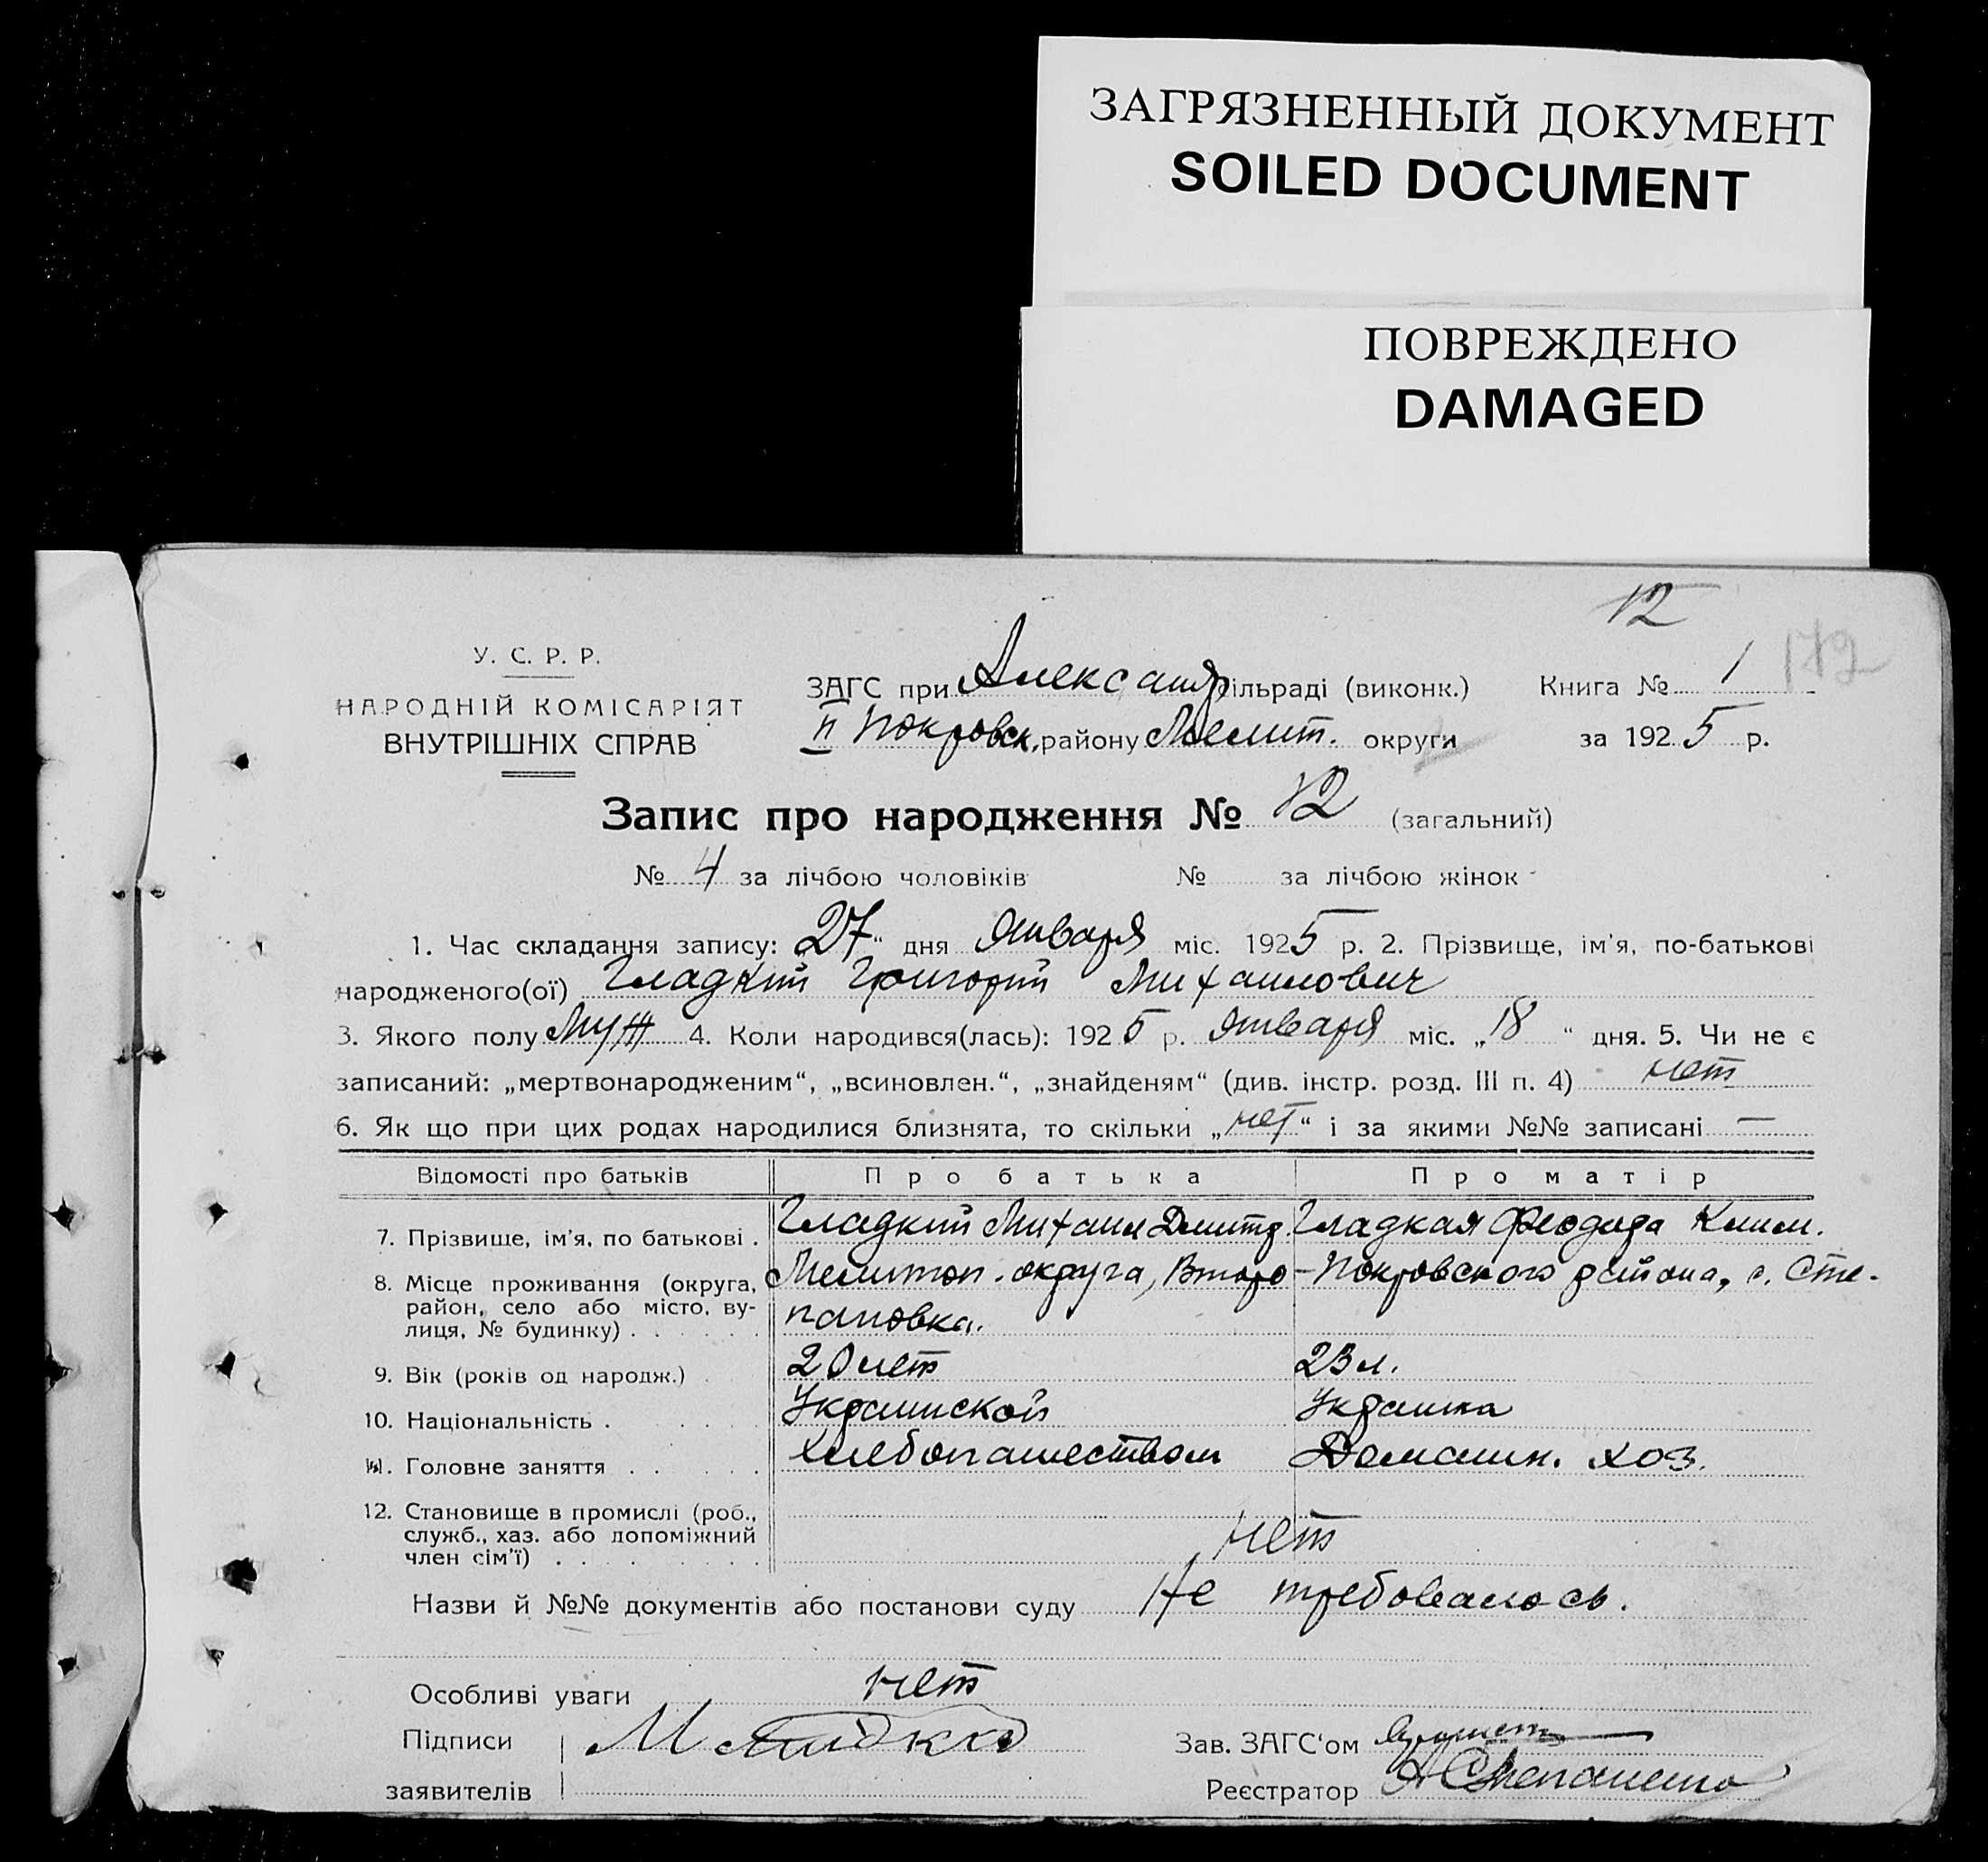 ЗАГРЯЗНЕННЫЙ ДОКУМЕНТ
SOILED DOCUMENT
ПОВРЕЖДЕНО
DAMAGED
12
172
У. С. Р. Р.
НАРОДНІЙ КОМІСАРІЯТ
ВНУТРІШНІХ СПРАВ
ЗАГС при Александр сільраді (виконк.) Книга № 1
II Покровск. району Мелит. округи за 1925 р.
Запис про народження № 12 (загальний)
№ 4 за лічбою чоловіків № за лічбою жінок
1. Час складання запису: „27“ дня Января міс. 1925 р. 2. Прізвище, ім'я, по-батькові
народженого(ої) Гладкий Григорий Михаилович
3. Якого полу Муж 4. Коли народився(лась): 1925 р. Января міс. „18“ дня. 5. Чи не є
записаний: „мертвонародженим“, „всиновлен.“, „знайденям“ (див. інстр. розд. III п. 4) нет
6. Як що при цих родах народилися близнята, то скільки „нет“ і за якими №№ записані —
Відомості про батьків Про батька Про матір
7. Прізвище, ім'я, по батькові . Гладкий Михаил Дмитр. Гладкая Феодора Клим.
8. Місце проживання (округа, район, село або місто, вулиця, № будинку) Мелитоп. округа, Второ-Покровского района, с. Сте-
пановка.
9. Вік (років од народж.) 20 лет 23 л.
10. Національність Украинской Украинка
11. Головне заняття хлебопашеством Домашн. хоз.
12. Становище в промислі (роб., служб., хаз. або допоміжний член сім'ї) нет
Назви й №№ документів або постанови суду Не требовалось.
Особливі уваги нет
Підписи
заявителів
Зав. ЗАГС'ом
Реєстратор А Степаненко